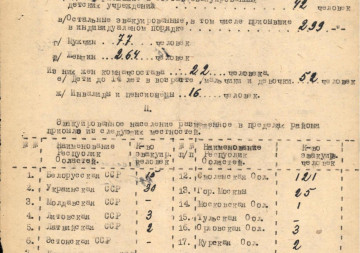 детских учреждений. . . . . . . 42 человек
в/Остальные эвакуированные, в том числе прибывшие
в индивидуальном порядке . . . . 299 — " —
г/ Мужчин . . 77. . . . человек
д/ Женщин . . 264. . . . человек
Из них жен комначсостава. . . 22. . человека.
е/ Дети до 14 лет в возрасте, мальчики и девочки. 52 ч.
ж/ Инвалиды и пенсионеры . 16. . . человек.
II.
Эвакуированное население размещенное в пределах района
прибыло из следующих местностей.
№ № Наименование Республик Областей. К-во эвакуир. человек № № п/п Наименование Республик Областей. К-во эвакуир. человек
1. Белорусская ССР 12. Смоленская Обл. 121
2. Украинская ССР 30 13. Гор. Москвы 25
3. Молдавская ССР – 14. Московская Обл. 1
4. Литовская ССР 3 15. Тульская Обл. –
5. Латвийская ССР 2 16. Орловская Обл. 3
6. Эстонская ССР – 17. Курская Обл. 2